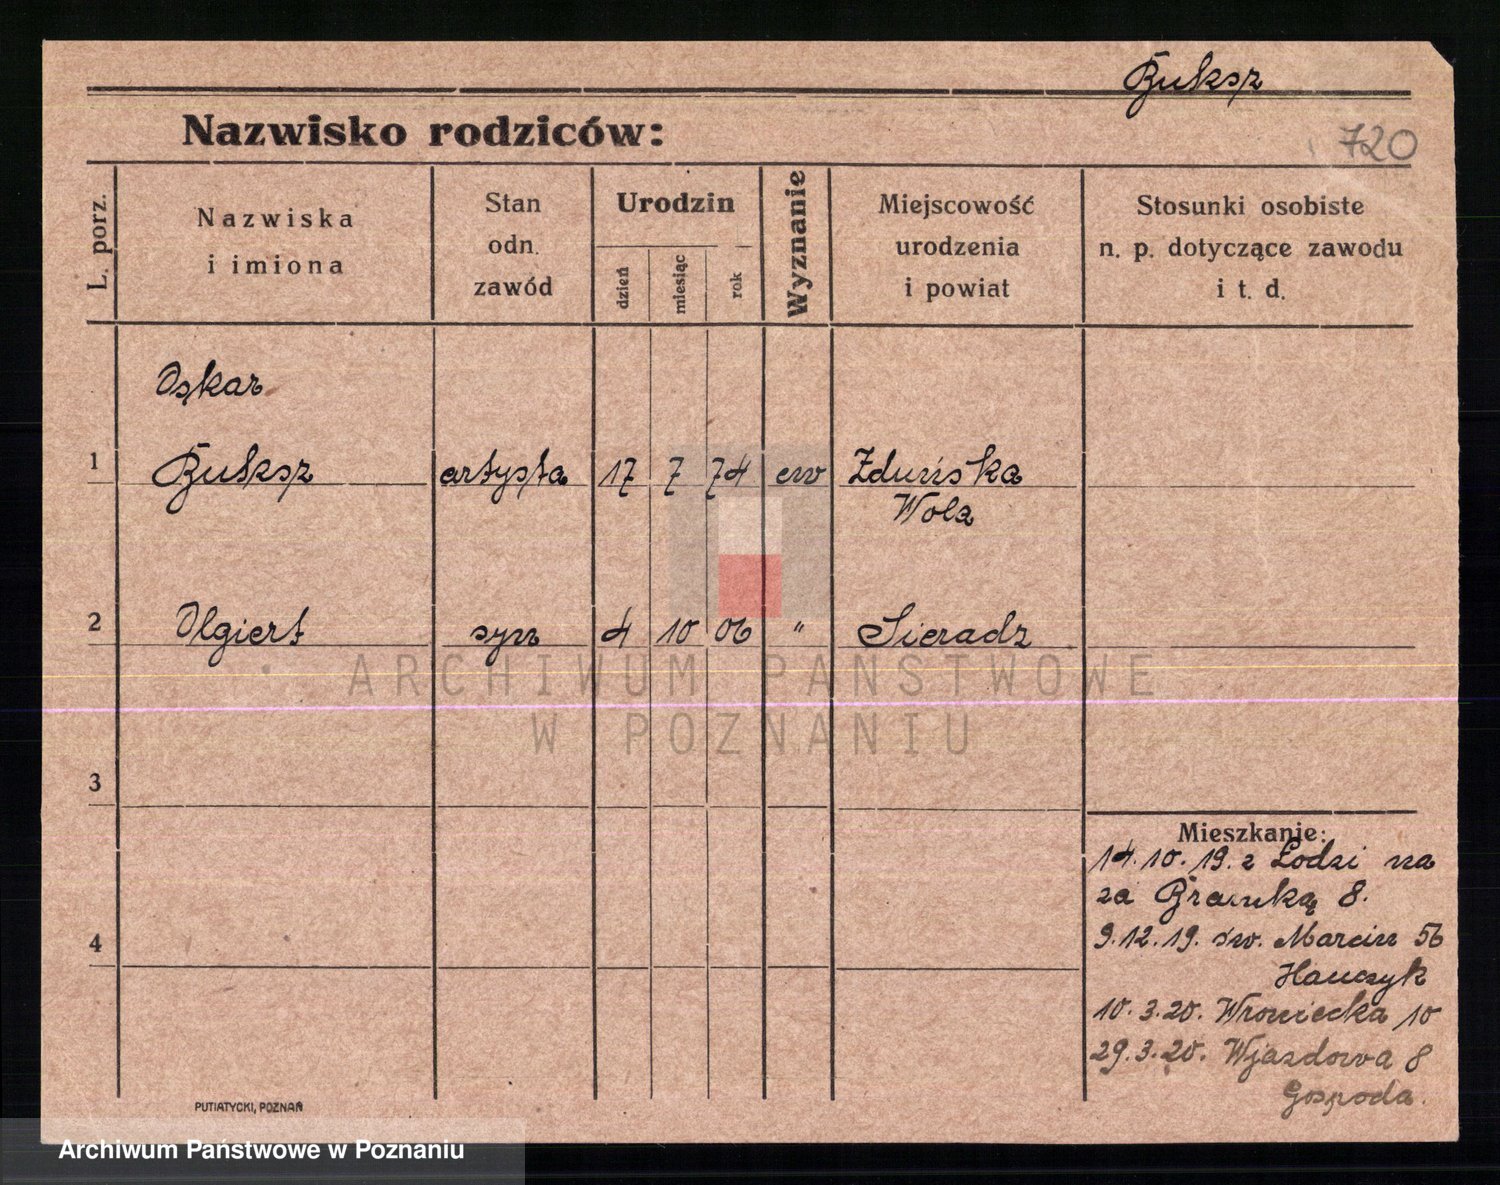 Buksz
Nazwisko rodziców:
720
L. porz.
Nazwiska
i imiona
Stan
odn.
zawód
Urodzin
dzień
miesiąc
rok
Wyznanie
Miejscowość
urodzenia
i powiat
Stosunki osobiste
n. p. dotyczące zawodu
i t. d.
Oskar
1 Buksz artysta 17 7 74 ew Zduńska
Wola
2 Olgiert syn 4 10 06 " Sieradz
ARCHIWUM PAŃSTWOWE
W POZNANIU
3
4
Mieszkanie:
14.10.19. z Łodzi na
za Bramką 8.
9.12.19. św. Marcin 56
Hauczyk
10.3.20. Wroniecka 10
29.3.20. Wjazdowa 8
Gospoda.
PUTIATYCKI, POZNAŃ
Archiwum Państwowe w Poznaniu